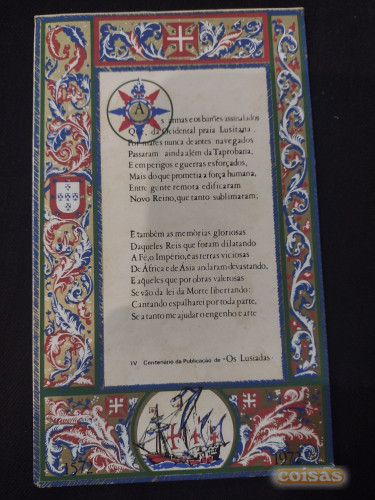 A
s armas e os barões assinalados
Que, da Ocidental praia Lusitana,
Por mares nunca de antes navegados
Passaram ainda além da Taprobana,
E em perigos e guerras esforçados,
Mais do que prometia a força humana,
Entre gente remota edificaram
Novo Reino, que tanto sublimaram;
E também as memórias gloriosas
Daqueles Reis que foram dilatando
A Fé, o Império, e as terras viciosas
De África e de Ásia andaram devastando,
E aqueles que por obras valerosas
Se vão da lei da Morte libertando:
Cantando espalharei por toda parte,
Se a tanto me ajudar o engenho e arte
IV Centenário da Publicação de «Os Lusíadas»
1572
coisas